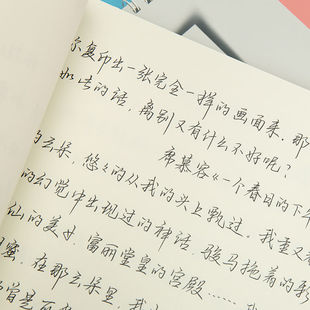 尔复印出一张完全一样的画面来，那
如此的话，离别又有什么不好呢？
席慕容《一个春日的下午
的云朵，悠々的从我的头上飘过。我重又
的幻觉中出现过的神话，骏马拖着的
仙的美女，富丽堂皇的宫殿……
蜜，在那云朵里，我
曾是